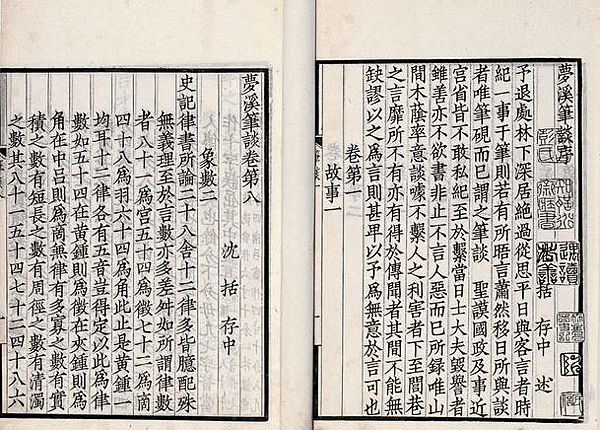 夢溪筆談序
括 存中 述
予退處林下深居絶過從思平日與客言者時
紀一事于筆則若有所晤言蕭然移日所與談
者唯筆硯而已謂之筆談 聖謨國政及事近
宫省皆不敢私紀至於繫當日士大夫毀譽者
雖善亦不欲書非止不言人惡而已所録唯山
間木蔭率意談噱不繫人之利害者下至閭巷
之言靡所不有亦有得於傳聞者其間不能無
缺謬以之為言則甚卑以予為無意於言可也
卷第一
故事一
夢溪筆談卷第八
沈 括 存中
象數二
史記律書所論二十八舍十二律多皆臆配殊
無義理至於言數亦多差舛如所謂律數
者八十一為宫五十四為徵七十二為商
四十八為羽六十四為角此止是黄鍾一
均耳十二律各有五音豈得定以此為律
數如五十四在黄鍾則為徵在夾鍾則為
角在中吕則為商兼律有多寡之數有實
積之數有短長之數有周徑之數有清濁
之數其八十一五十四七十二四十八六